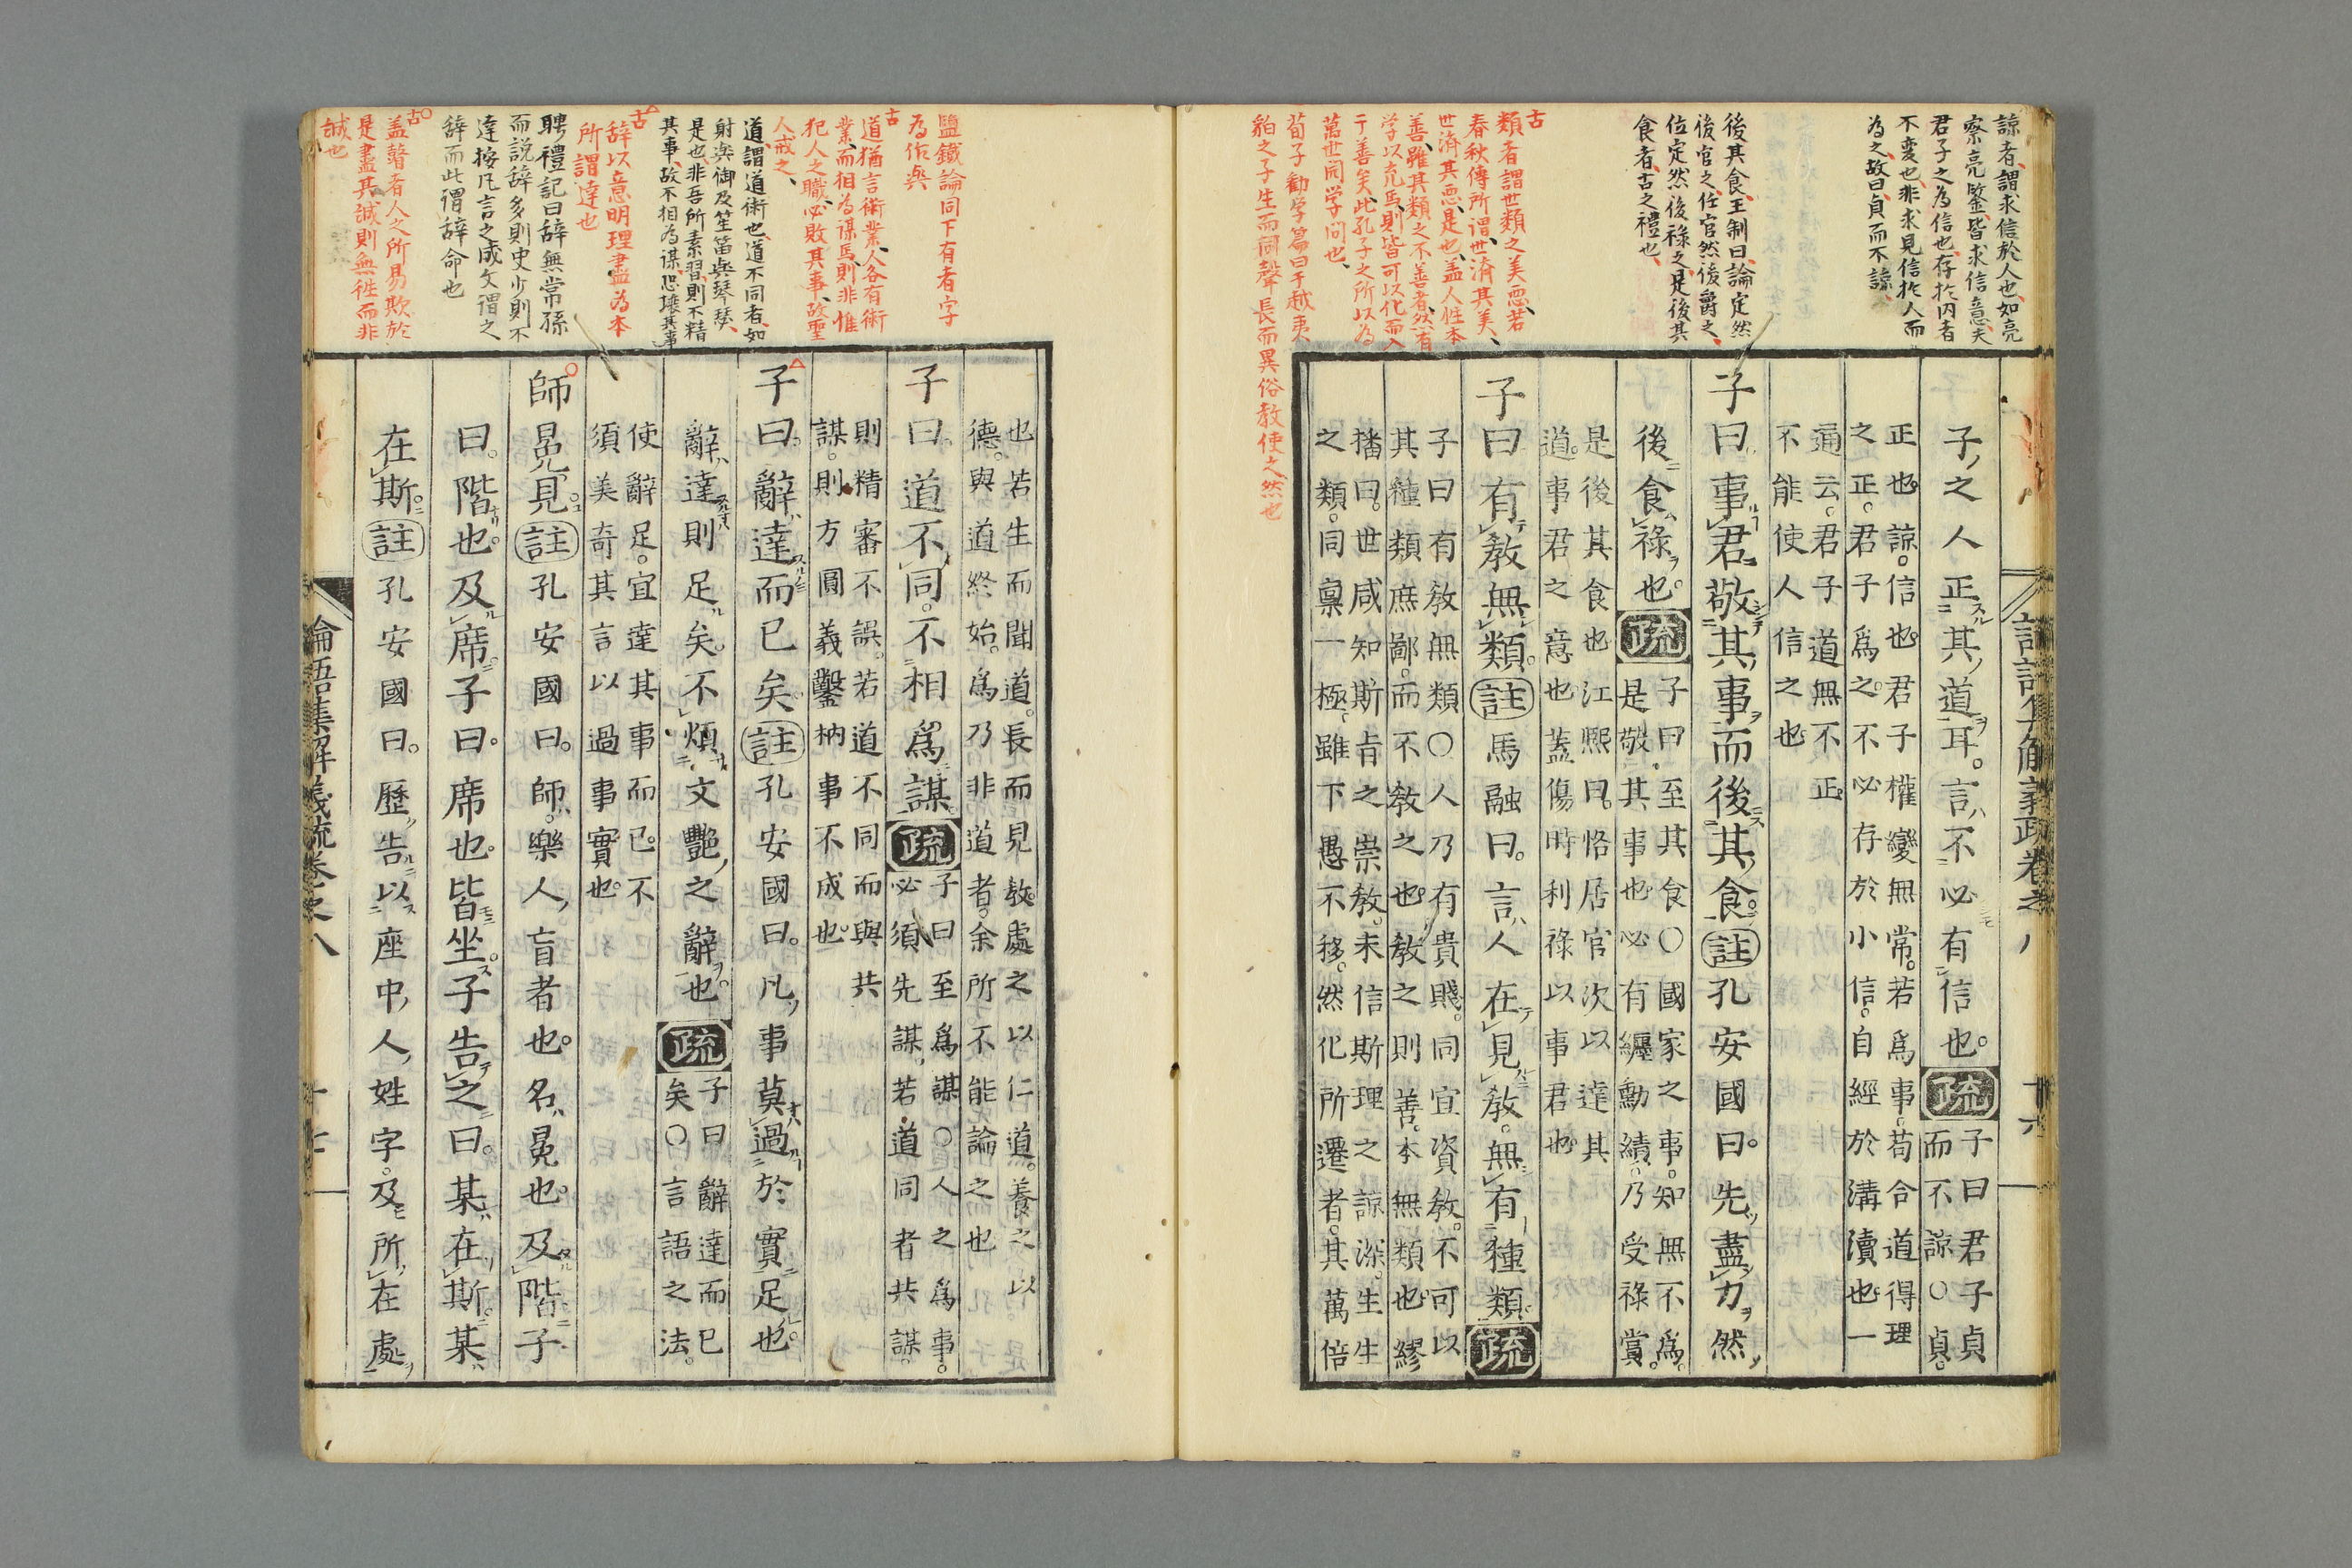 諒者謂求信於人也如亮
察亮鑒皆求信意夫
君子之為信也存於內者
不變也非求見信於人而
為之故曰貞而不諒
後其食王制曰論定然
後官之任官然後爵之
位定然後祿之是後其
食者古之禮也
古
類者謂世類之美惡若
春秋傳所謂世濟其美
世濟其惡是也蓋人性本
善雖其類之不善者然有
学以充焉則皆可以化而入
于善矣此孔子之所以為
萬世開学问也
荀子勸学篇曰于越夷
貉之子生而同聲長而異俗教使之然也
子之人正其道耳言不必有信也疏
子曰君子貞
而不諒○貞
正也諒信也君子權變無常若爲事苟合道得理
之正君子爲之不必存於小信自經於溝瀆也一
通云君子道無不正
不能使人信之也
子曰事君敬其事而後其食註孔安國曰先盡力然
後食祿也疏
子曰至其食○國家之事知無不爲
是敬其事也必有纏勳績乃受祿賞
是後其食也江熙曰恪居官次以達其
道事君之意也蓋傷時利祿以事君也
子曰有敎無類註馬融曰言人在見敎無有種類疏
子曰有敎無類○人乃有貴賤同宜資敎不可以
其種類庶鄙而不敎之也敎之則善本無類也繆
播曰世咸知斯肯之崇敎未信斯理之諒深生生
之類同稟一極雖下愚不移然化所遷者其萬倍
論語集解義疏卷之八 十六
鹽鐵論同下有者字
為作與
古
道猶言術業人各有術
業而相為謀焉則非惟
犯人之職必敗其事故重
人戒之
道謂道術也道不同者如
射与御及笙笛與琴瑟
是也非吾所素習則不精
其事故不相為謀恐壞其事
古
辞以意明理盡為本
所謂達也
聘禮記曰辞無常孫
而説辞多則史少則不
達按凡言之成文謂之
辞而此謂辞命也
古
盖瞽者人之所易欺於
是盡其誠則無往而非
誠也
也若生而聞道長而見敎處之以仁道養之以
德與道終始爲乃非道者余所不能論之也
子曰道不同不相爲謀疏
子曰至爲謀○人之爲事
必須先謀若道同者共謀
則精審不誤若道不同而與共
謀則方圓義鑿枘事不成也
子曰辭達而已矣註孔安國曰凡事莫過於實足也
辭達則足矣不煩文艷之辭也疏
子曰辭達而已
矣○言語之法
使辭足宜達其事而已不
須美奇其言以過事實也
師冕見註孔安國曰師樂人盲者也名冕也及階子
曰階也及席子曰席也皆坐子告之曰某在斯某
在斯註孔安國曰歷告以座中人姓字及所在處
論語集解義疏卷之八 十七